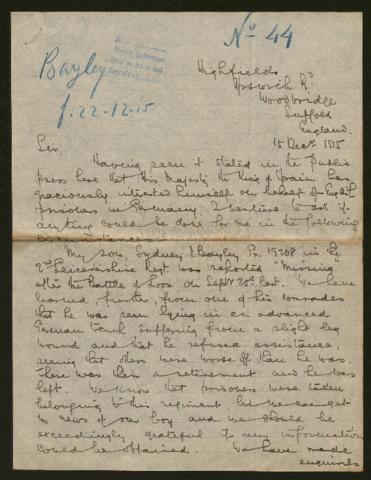 Nº 44
Bayley
f. 22-12-15
Highfields
Ipswich Rd
Woodbridge
Suffolk
England.
15 Decr 1915
Sir
Having seen it stated in the Public
press here that His Majesty the King of Spain has
graciously interested himself on behalf of English
prisoners in Germany, I venture to ask if
anything could be done for me in the following
circumstances.
My son, Sydney Bayley Pr. 19208 in the
2nd Leicestershire Regt was reported "Missing"
after the Battle of Loos on Septr 25th last. We have
learned, further, from one of his comrades
that he was seen lying in an advanced
German trench suffering from a slight leg
wound and that he refused assistance,
seeing that others were worse off than he was.
There was then a retirement and he was
left. We know that prisoners were taken
belonging to this regiment but we can get
no news of our boy and we should be
exceedingly grateful if any information
could be obtained. We have made
enquiries